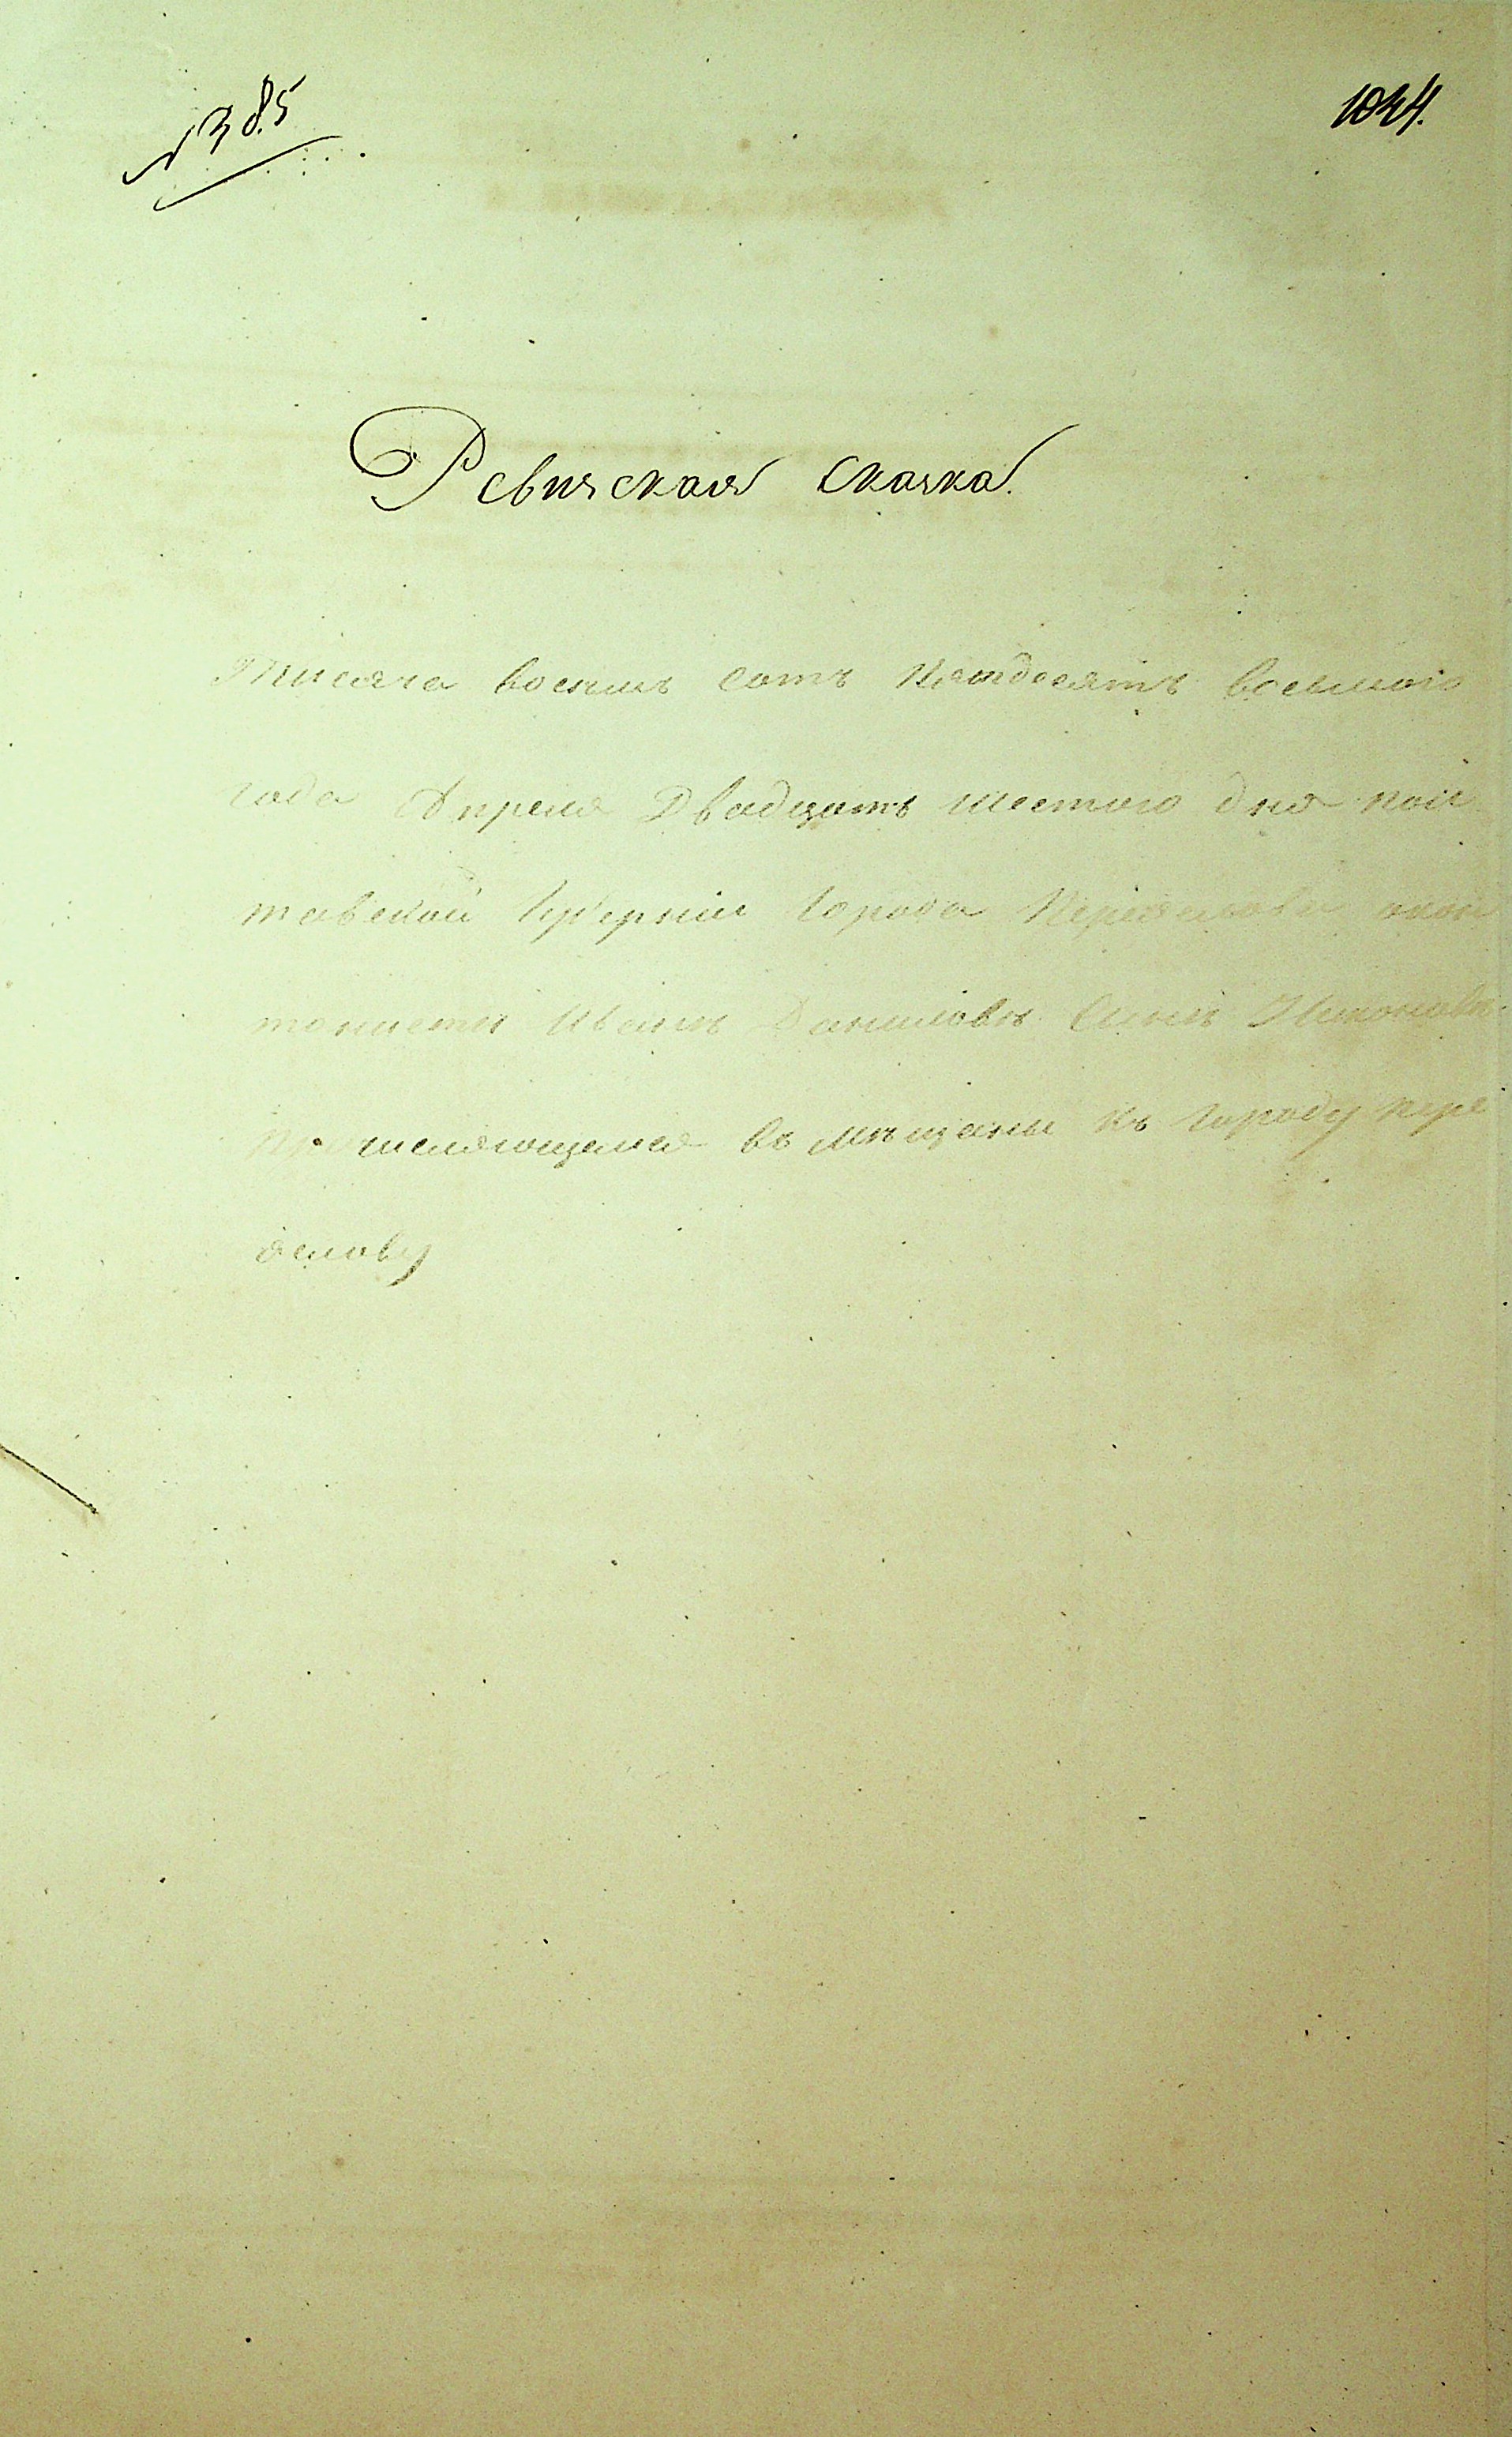 № 385
1024.
Ревизская сказка.
Тисяча восемь сотъ пятдесятъ восьмого
года Апреля Двадцать шестого дня пол
тавской Губерніи Города Переяслова
Иванъ Даниловъ Синъ
причисляющемся въ мещаны къ городу пере
яслову